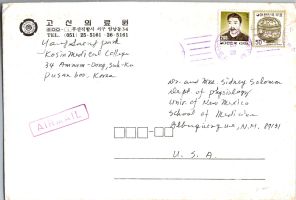 고신의료원
TEL (051) 25-5161 26 5161
Kosin Medical College
34 Amnam-Dong, Suh-Ku
Pusan 600, Korea
AIR MAIL
Dr. and Mrs. Sidney Solomon
Dept of Physiology
Univ. of New Mexico
School of Medicine
Albuquerque, N.M. 87131
U. S. A.